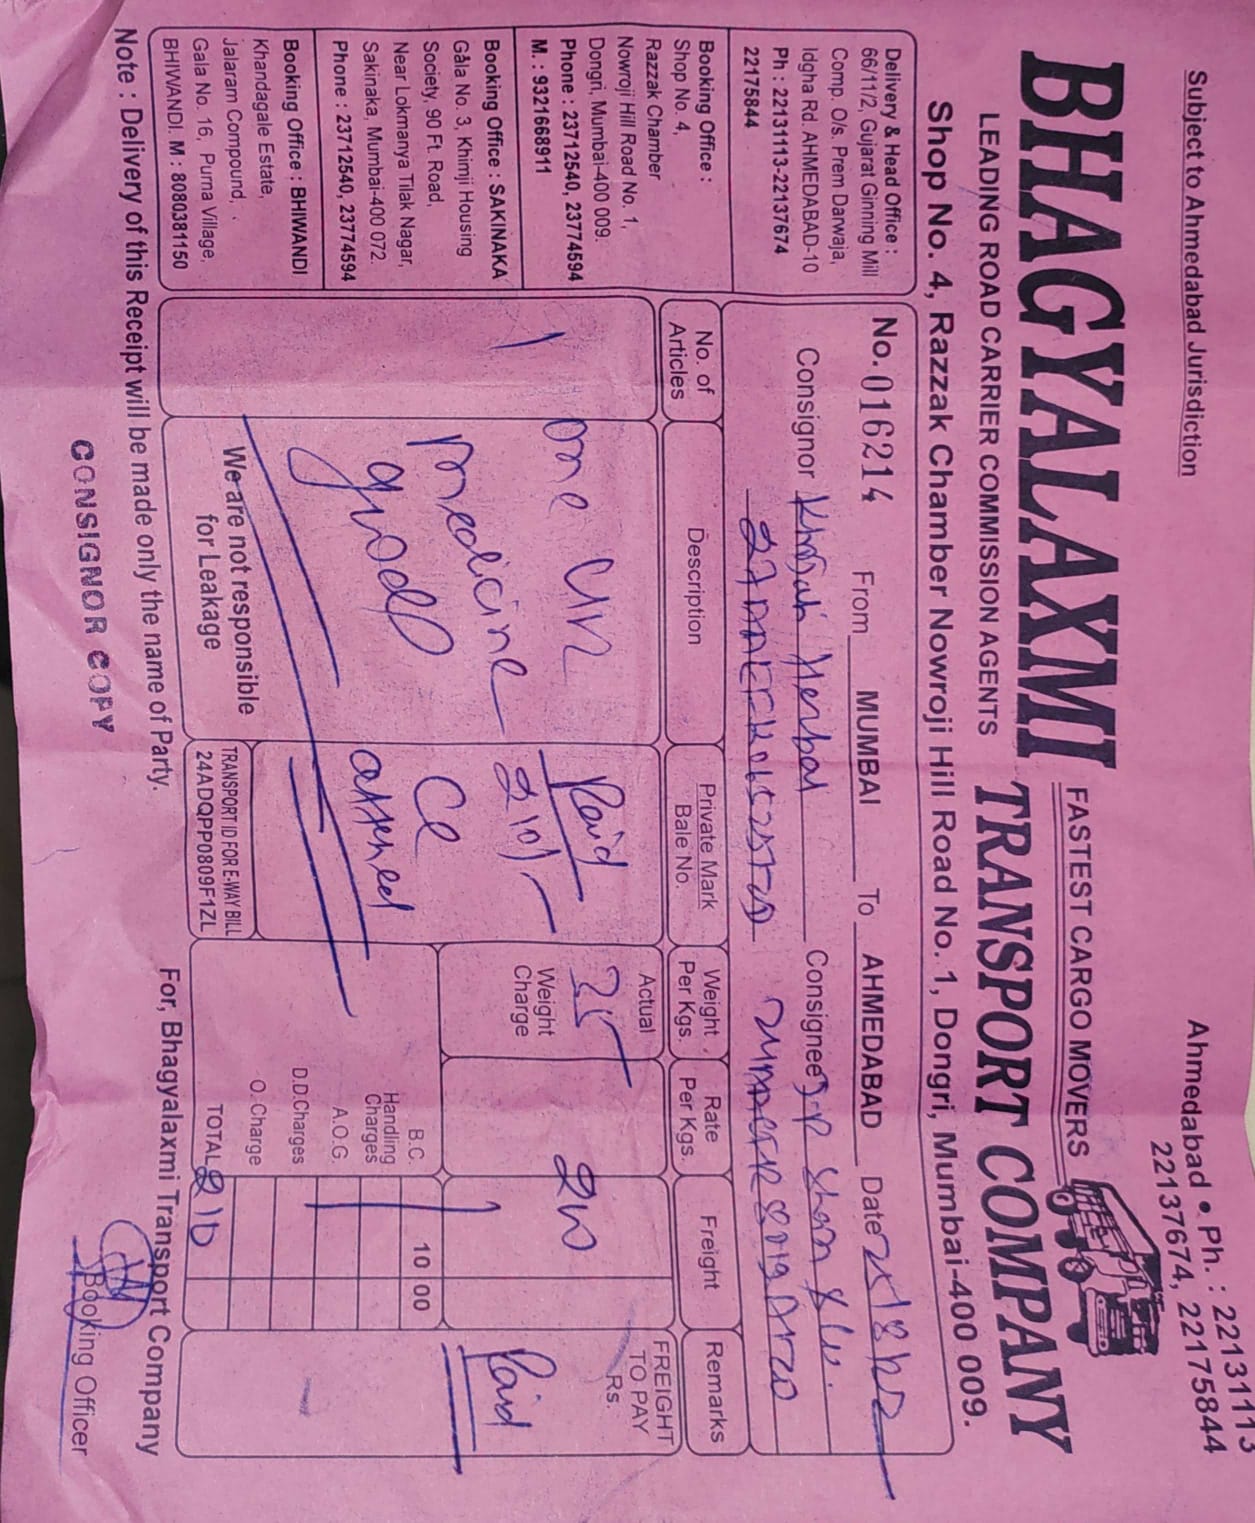 Subject to Ahmedabad Jurisdiction
Ahmedabad • Ph. : 22131113
22137674, 22175844
BHAGYALAXMI
FASTEST CARGO MOVERS
LEADING ROAD CARRIER COMMISSION AGENTS
TRANSPORT COMPANY
Shop No. 4, Razzak Chamber Nowroji Hill Road No. 1, Dongri, Mumbai-400 009.
Delivery & Head Office :
66/11/2, Gujarat Ginning Mill
Comp. O/s. Prem Darwaja,
Idgha Rd. AHMEDABAD-10
Ph : 22131113-22137674
22175844
Booking Office :
Shop No. 4,
Razzak Chamber
Nowroji Hill Road No. 1,
Dongri, Mumbai-400 009.
Phone : 23712540, 23774594
M. : 9321668911
Booking Office : SAKINAKA
Gala No. 3, Khimji Housing
Society, 90 Ft. Road,
Near Lokmanya Tilak Nagar,
Sakinaka, Mumbai-400 072.
Phone : 23712540, 23774594
Booking Office : BHIWANDI
Khandagale Estate,
Jalaram Compound,
Gala No. 16, Purna Village,
BHIWANDI. M : 8080381150
No. 016214 From MUMBAI To AHMEDABAD Date
Consignor Herbal Consignee
No. of Articles
Description
Private Mark
Bale No.
Weight Per Kgs.
Rate Per Kgs.
Freight
Remarks
1
one
medicine
goods
Paid
210/-
CC
attached
Actual
25
Weight Charge
200
FREIGHT TO PAY Rs.
Paid
B.C. 10 00
Handling Charges
A.O.G.
D.D.Charges
O.Charge
TOTAL 210
We are not responsible
for Leakage
TRANSPORT ID FOR E-WAY BILL
24ADQPP0809F1ZL
Note : Delivery of this Receipt will be made only the name of Party.
For, Bhagyalaxmi Transport Company
CONSIGNOR COPY
Booking Officer